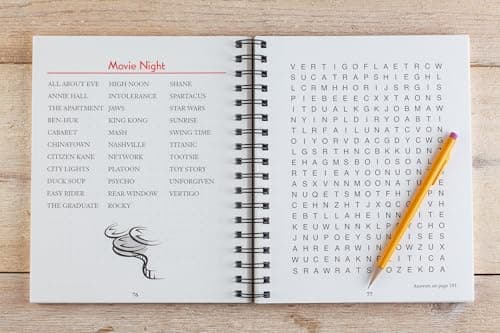 Movie Night
ALL ABOUT EVE HIGH NOON SHANE
ANNIE HALL INTOLERANCE SPARTACUS
THE APARTMENT JAWS STAR WARS
BEN-HUR KING KONG SUNRISE
CABARET MASH SWING TIME
CHINATOWN NASHVILLE TITANIC
CITIZEN KANE NETWORK TOOTSIE
CITY LIGHTS PLATOON TOY STORY
DUCK SOUP PSYCHO UNFORGIVEN
EASY RIDER REAR WINDOW VERTIGO
THE GRADUATE ROCKY
76
V E R T I G O F L A E T R C W
S U C A T R A P S H I E G H L
L C R M H H O R I J S R G I S
P I E B E E E C X X T A O N S
I T D U A L K G K J O B M A W
N Y I N P L D I R Y O A B T I
T L R F A I L U N A T C V O N
O I Y O R V D A C G D Y C W G
L G S R T H N C B K K U D N
E H A G M S B O I O S O A L
R T E I E A Y O O N U O
A S X V N N M O O N A T U E
N U Q E O T S M O F H T N
C E H N Z H T J X Q C
E B T L L A H E I N N I T E
K E U W L N N K L P Y C H O
J N U P O E Y S U N I S E S
A H R E A R W I N O W Z U X
W U C E N A K N E I T I C A
S R A W R A T S O Z E K D A
Answers on page 181
77